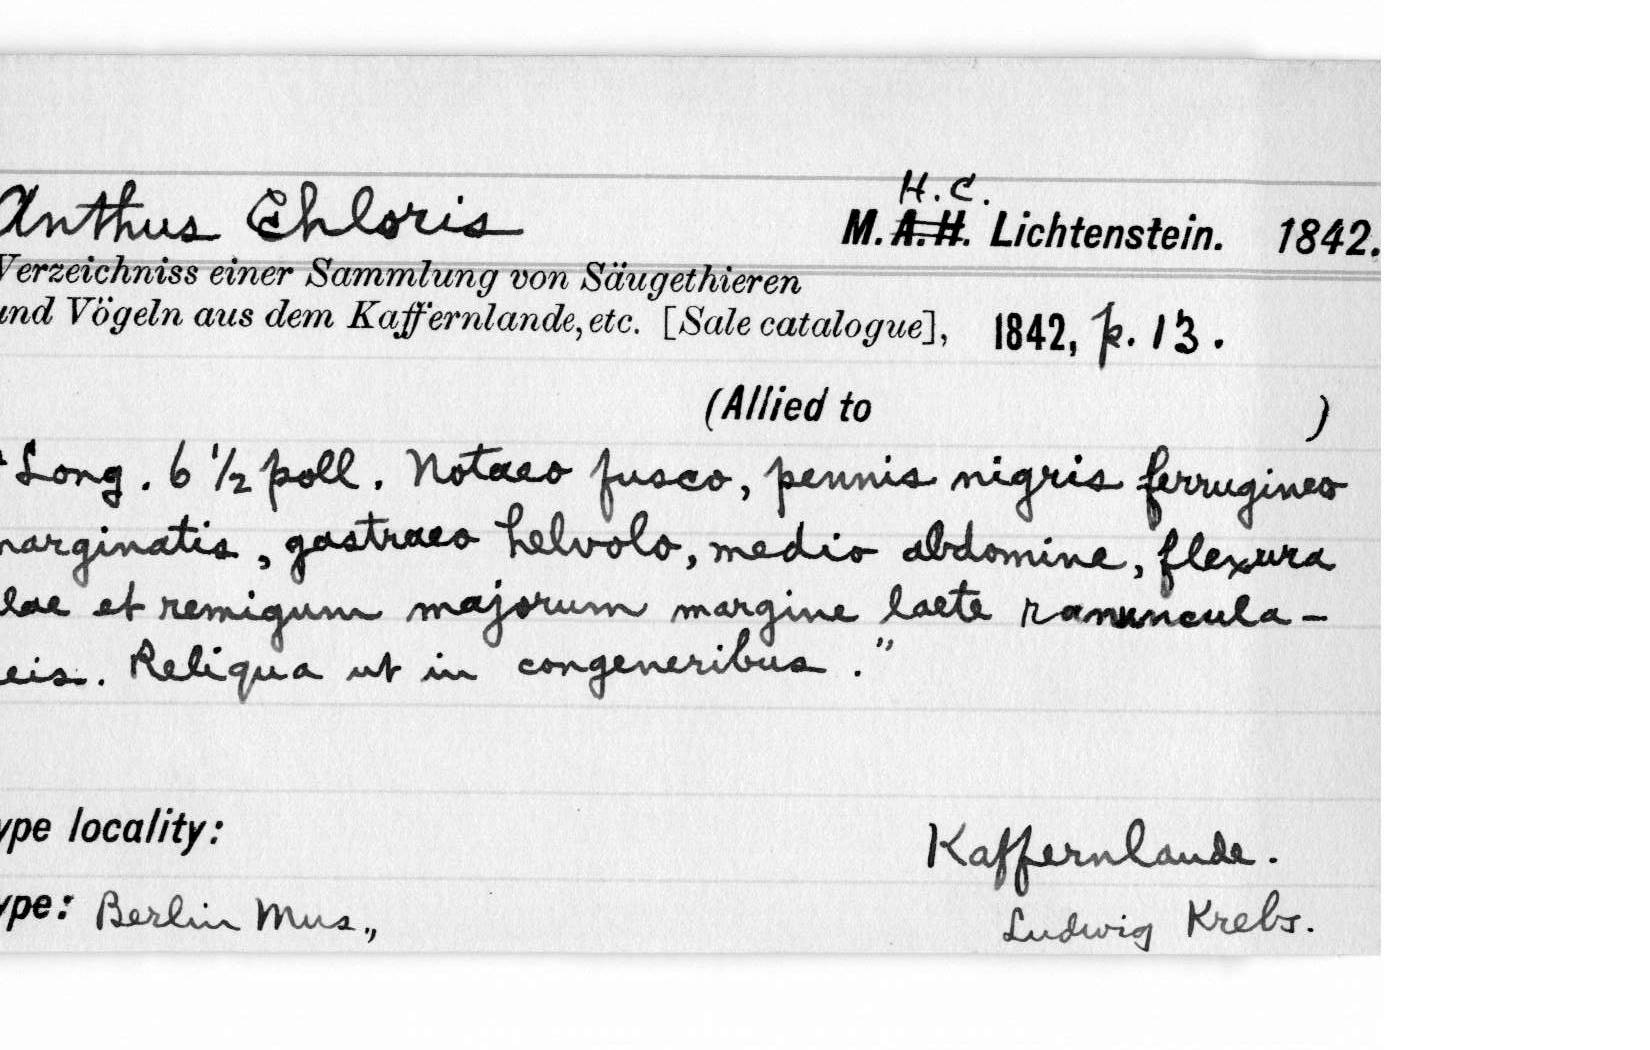 Anthus Chloris
H.C.
M. A.H. Lichtenstein. 1842.
Verzeichniss einer Sammlung von Säugethieren
und Vögeln aus dem Kaffernlande, etc. [Sale catalogue], 1842, p. 13.
(Allied to )
"Long. 6 1/2 poll. Notaeo fusco, pennis nigris ferrugineo
marginatis, gastraeo helvolo, medio abdomine, flexura
lae et remigum majorum margine laete ranuncula-
eis. Reliqua ut in congeneribus."
ype locality: Kaffernlande.
ype: Berlin Mus., Ludwig Krebs.